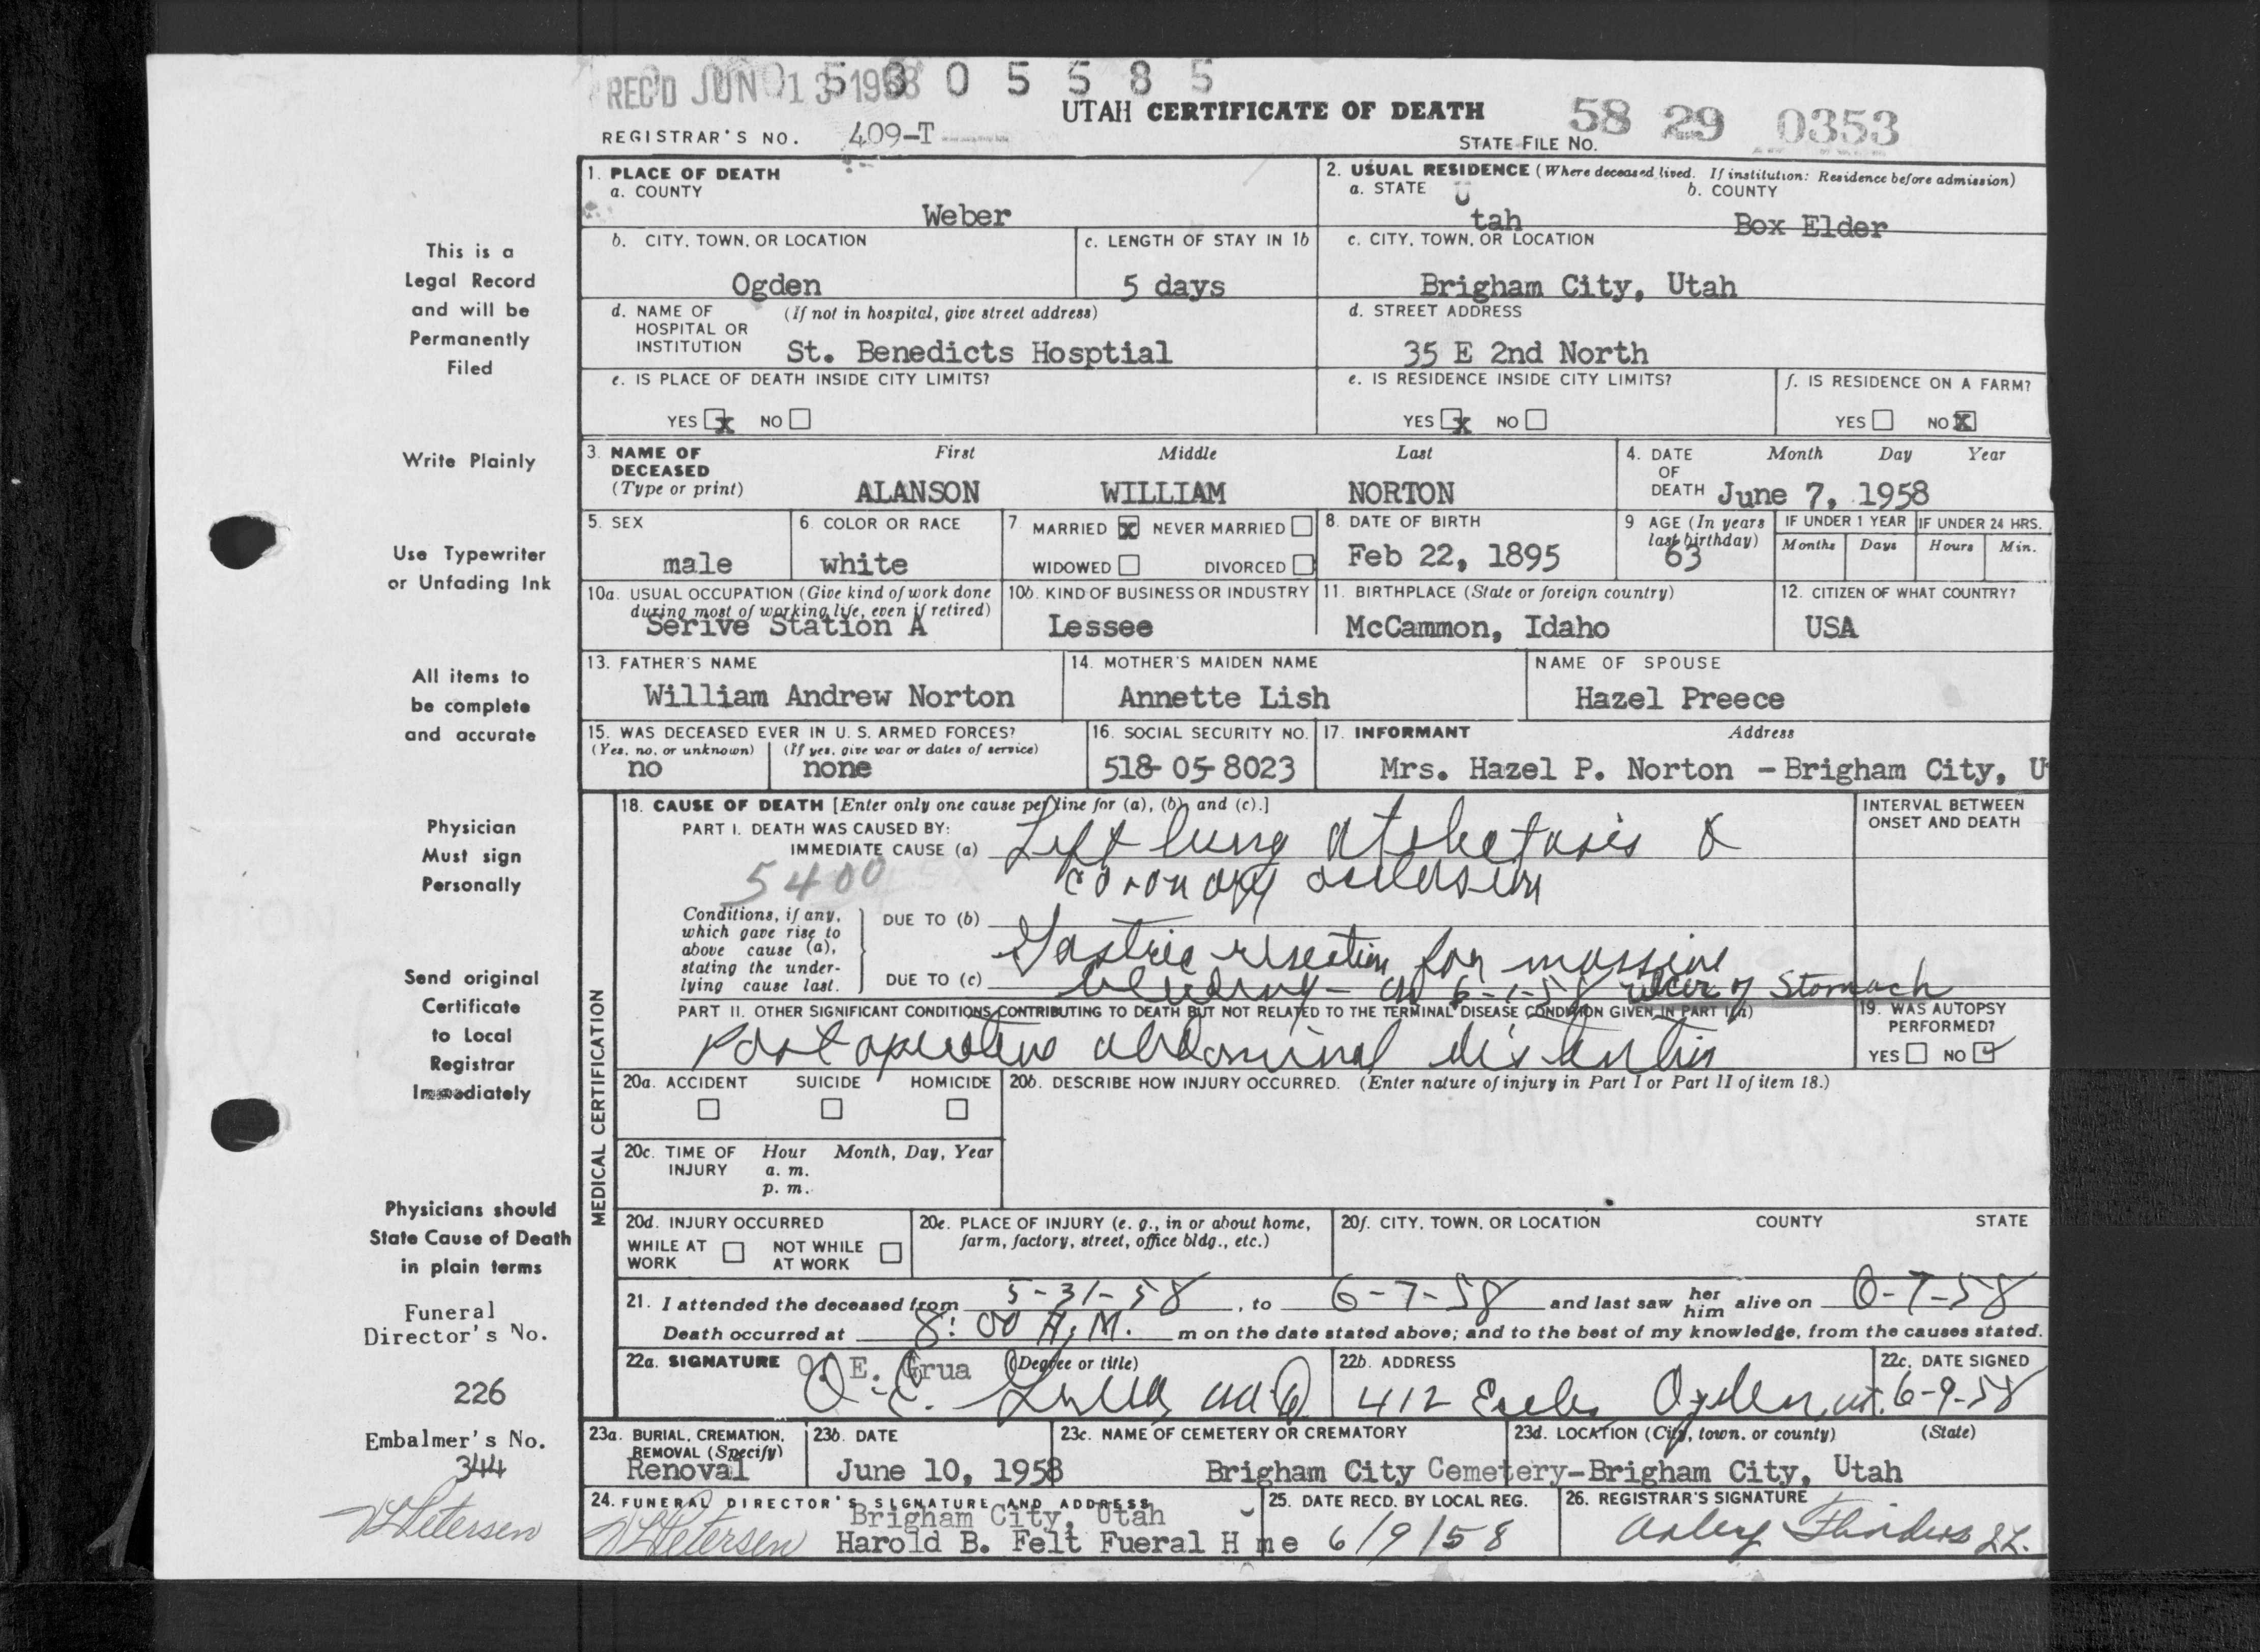 REC'D JUN 13 1958 5 8 0 5 5 8 5
UTAH CERTIFICATE OF DEATH 58 29 0353
REGISTRAR'S NO. 409-T STATE FILE No.
1. PLACE OF DEATH
a. COUNTY
Weber
2. USUAL RESIDENCE (Where deceased lived. If institution: Residence before admission)
a. STATE b. COUNTY
Utah Box Elder
b. CITY, TOWN, OR LOCATION
Ogden
c. LENGTH OF STAY IN 1b
5 days
c. CITY, TOWN, OR LOCATION
Brigham City, Utah
d. NAME OF HOSPITAL OR INSTITUTION (If not in hospital, give street address)
St. Benedicts Hosptial
d. STREET ADDRESS
35 E 2nd North
e. IS PLACE OF DEATH INSIDE CITY LIMITS?
YES x NO
e. IS RESIDENCE INSIDE CITY LIMITS?
YES x NO
f. IS RESIDENCE ON A FARM?
YES NO X
3. NAME OF DECEASED (Type or print)
First Middle Last
ALANSON WILLIAM NORTON
4. DATE OF DEATH Month Day Year
June 7, 1958
5. SEX
male
6. COLOR OR RACE
white
7. MARRIED X NEVER MARRIED
WIDOWED DIVORCED
8. DATE OF BIRTH
Feb 22, 1895
9 AGE (In years last birthday)
63
IF UNDER 1 YEAR IF UNDER 24 HRS.
Months Days Hours Min.
10a. USUAL OCCUPATION (Give kind of work done during most of working life, even if retired)
Serive Station A
10b. KIND OF BUSINESS OR INDUSTRY
Lessee
11. BIRTHPLACE (State or foreign country)
McCammon, Idaho
12. CITIZEN OF WHAT COUNTRY?
USA
13. FATHER'S NAME
William Andrew Norton
14. MOTHER'S MAIDEN NAME
Annette Lish
NAME OF SPOUSE
Hazel Preece
15. WAS DECEASED EVER IN U. S. ARMED FORCES?
(Yes, no, or unknown) (If yes, give war or dates of service)
no none
16. SOCIAL SECURITY NO.
518-05-8023
17. INFORMANT Address
Mrs. Hazel P. Norton - Brigham City, U
MEDICAL CERTIFICATION
18. CAUSE OF DEATH [Enter only one cause per line for (a), (b), and (c).]
INTERVAL BETWEEN ONSET AND DEATH
PART I. DEATH WAS CAUSED BY:
IMMEDIATE CAUSE (a) Left lung atelectasis &
5400 coronary occlusion
Conditions, if any, which gave rise to above cause (a), stating the underlying cause last.
DUE TO (b)
Gastric resection for massive
DUE TO (c) bleeding - on 6-1-58 ulcer of Stomach
PART II. OTHER SIGNIFICANT CONDITIONS CONTRIBUTING TO DEATH BUT NOT RELATED TO THE TERMINAL DISEASE CONDITION GIVEN IN PART I(a)
Post operative abdominal distention
19. WAS AUTOPSY PERFORMED?
YES NO ✓
20a. ACCIDENT SUICIDE HOMICIDE
20b. DESCRIBE HOW INJURY OCCURRED. (Enter nature of injury in Part I or Part II of item 18.)
20c. TIME OF INJURY Hour Month, Day, Year
a. m.
p. m.
20d. INJURY OCCURRED
WHILE AT WORK NOT WHILE AT WORK
20e. PLACE OF INJURY (e. g., in or about home, farm, factory, street, office bldg., etc.)
20f. CITY, TOWN, OR LOCATION COUNTY STATE
21. I attended the deceased from 5-31-58, to 6-7-58 and last saw her him alive on 6-7-58
Death occurred at 8:00 A.M. m on the date stated above; and to the best of my knowledge, from the causes stated.
22a. SIGNATURE (Degree or title)
O. E. Grua
O. E. Grua MD
22b. ADDRESS
412 Eccles Ogden, Ut.
22c. DATE SIGNED
6-9-58
23a. BURIAL, CREMATION, REMOVAL (Specify)
Renoval
23b. DATE
June 10, 1958
23c. NAME OF CEMETERY OR CREMATORY
23d. LOCATION (City, town, or county) (State)
Brigham City Cemetery-Brigham City, Utah
24. FUNERAL DIRECTOR'S SIGNATURE AND ADDRESS
Brigham City, Utah
Petersen Harold B. Felt Fueral H me
25. DATE RECD. BY LOCAL REG.
6/9/58
26. REGISTRAR'S SIGNATURE
This is a
Legal Record
and will be
Permanently
Filed
Write Plainly
Use Typewriter
or Unfading Ink
All items to
be complete
and accurate
Physician
Must sign
Personally
Send original
Certificate
to Local
Registrar
Immediately
Physicians should
State Cause of Death
in plain terms
Funeral
Director's No.
226
Embalmer's No.
344
Petersen